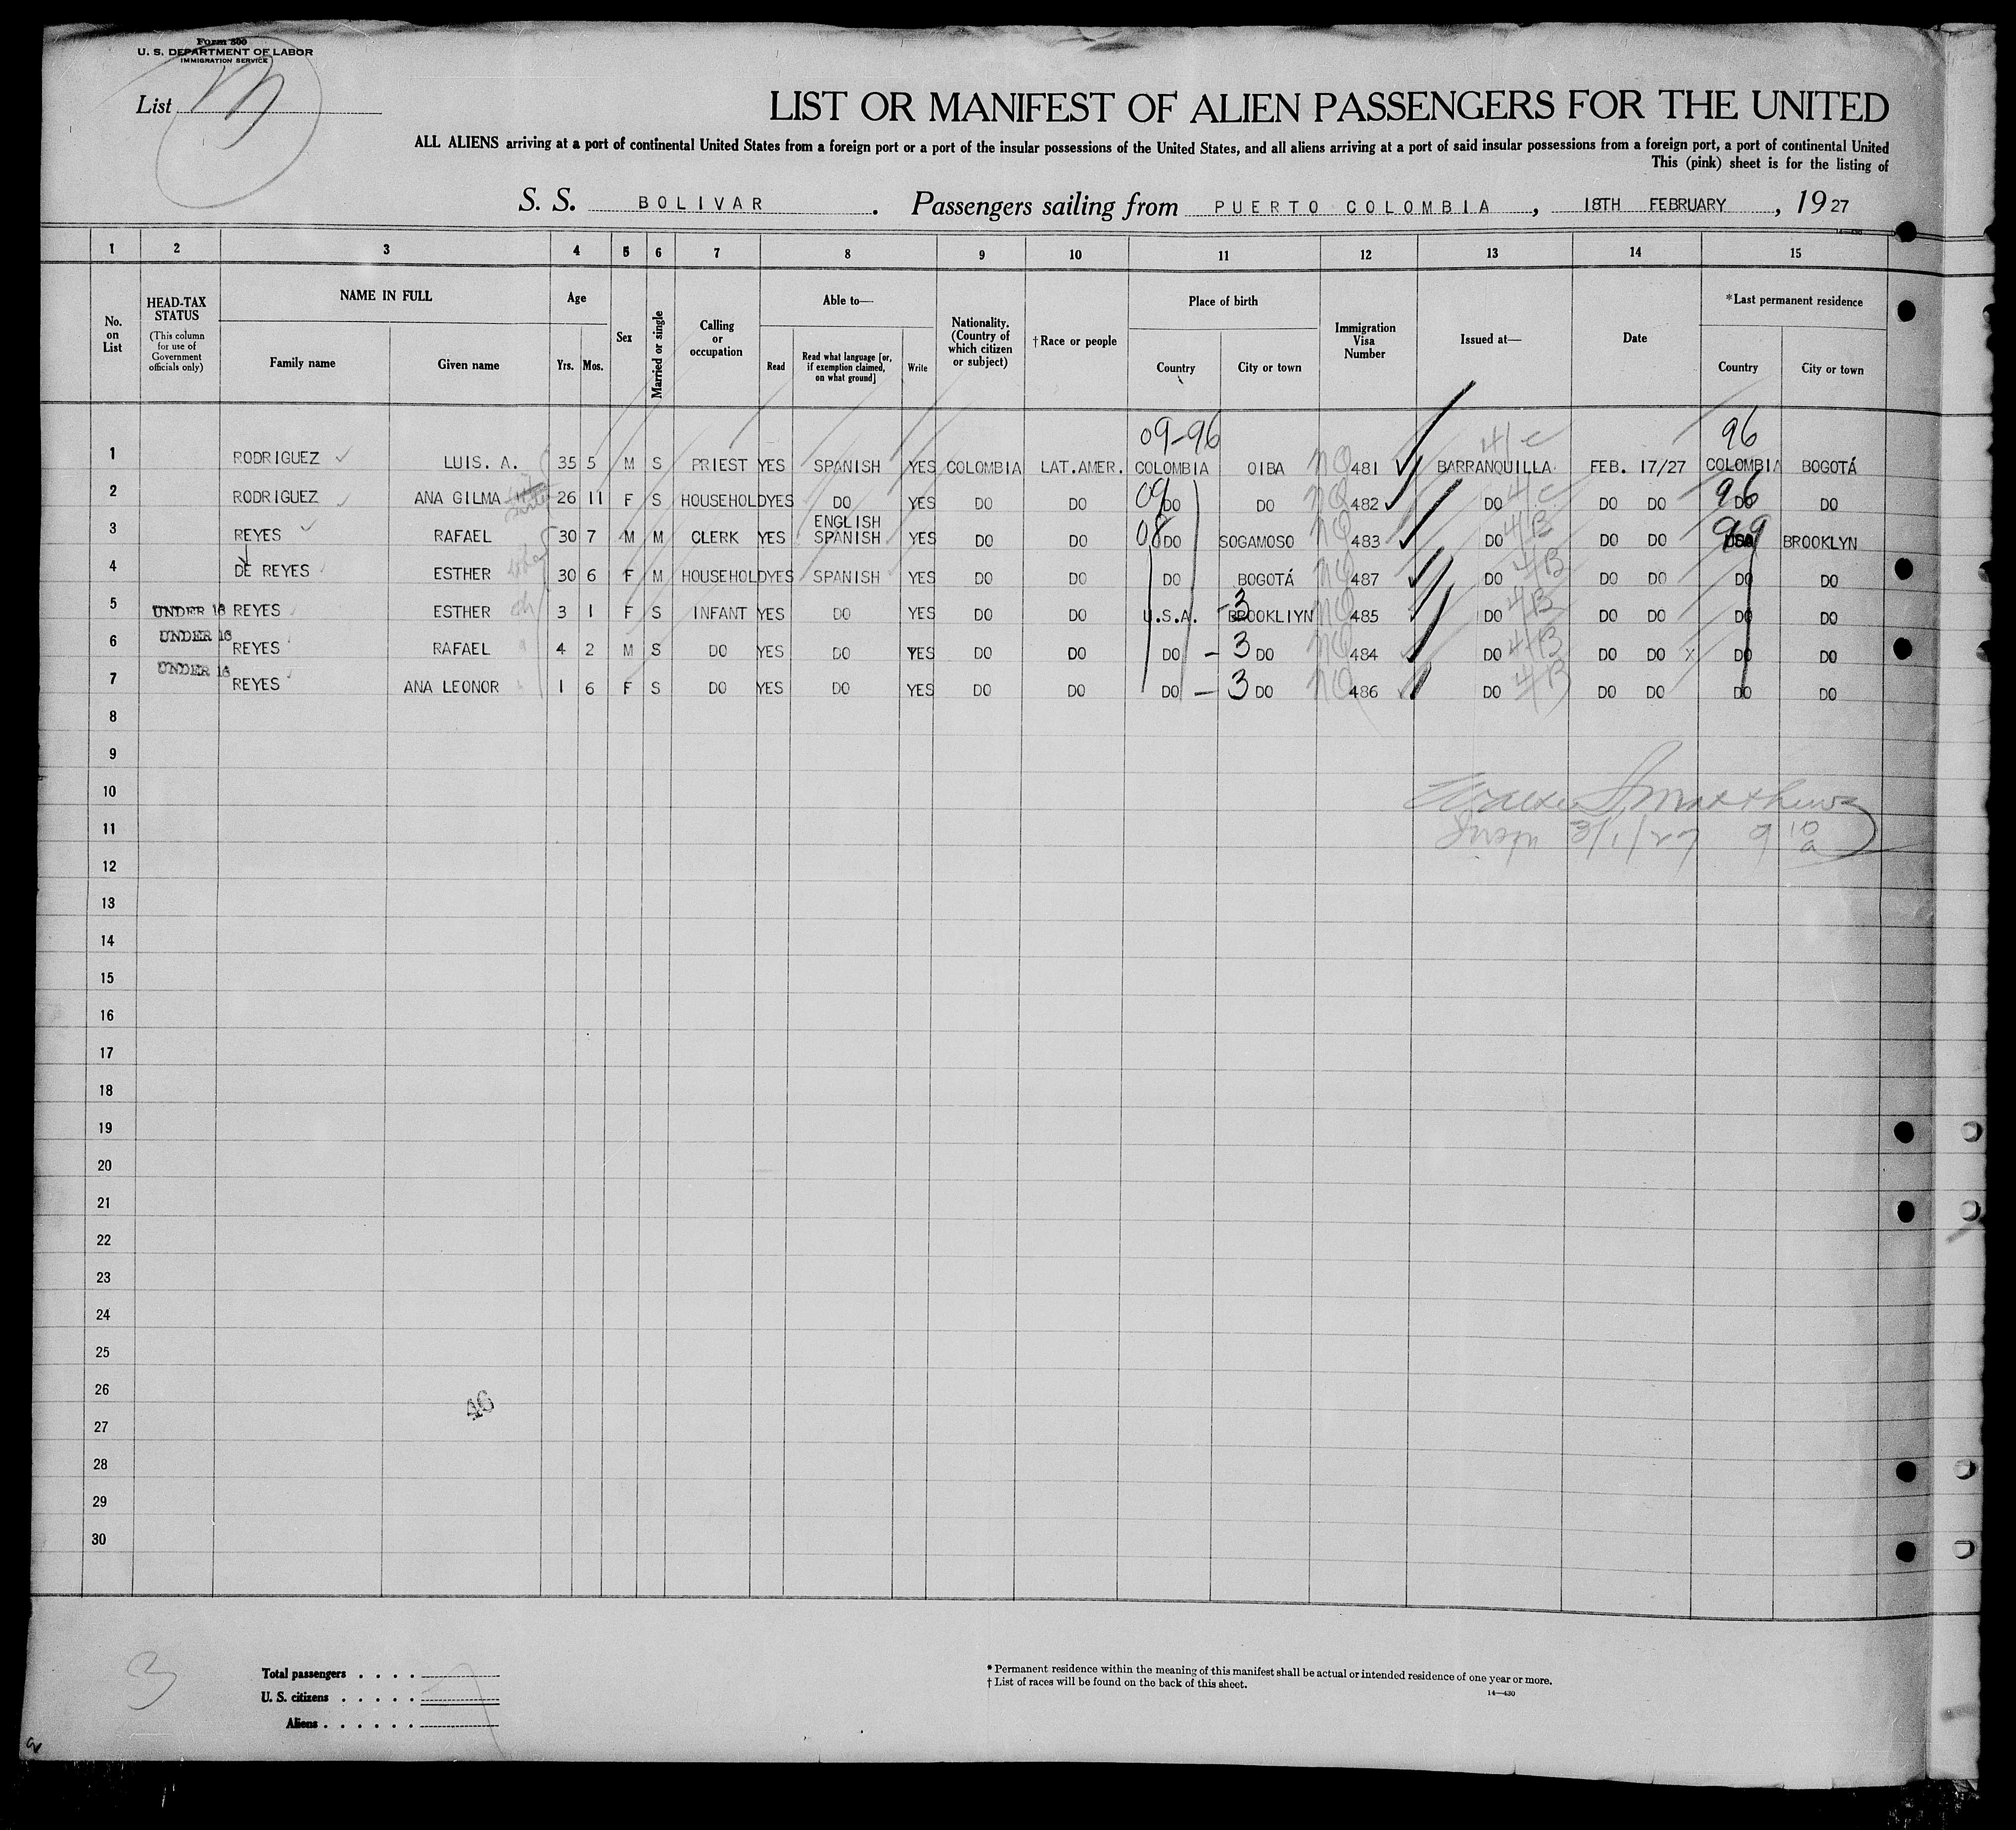 Form 500
U. S. DEPARTMENT OF LABOR
IMMIGRATION SERVICE
List
LIST OR MANIFEST OF ALIEN PASSENGERS FOR THE UNITED
ALL ALIENS arriving at a port of continental United States from a foreign port or a port of the insular possessions of the United States, and all aliens arriving at a port of said insular possessions from a foreign port, a port of continental United
This (pink) sheet is for the listing of
S. S. BOLIVAR. Passengers sailing from PUERTO COLOMBIA, 18TH FEBRUARY, 1927
1 2 3 4 5 6 7 8 9 10 11 12 13 14 15
No. on List
HEAD-TAX STATUS
(This column for use of Government officials only)
NAME IN FULL
Family name
Given name
Age
Yrs. Mos.
Sex
Married or single
Calling or occupation
Able to—
Read
Read what language [or, if exemption claimed, on what ground]
Write
Nationality. (Country of which citizen or subject)
†Race or people
Place of birth
Country
City or town
Immigration Visa Number
Issued at—
Date
*Last permanent residence
Country
City or town
09-96 4/c 96
1 RODRIGUEZ LUIS. A. 35 5 M S PRIEST YES SPANISH YES COLOMBIA LAT.AMER. COLOMBIA OIBA NQ 481 BARRANQUILLA. FEB. 17/27 COLOMBIA BOGOTÁ
2 RODRIGUEZ ANA GILMA 26 11 F S HOUSEHOLD YES DO YES DO DO 09 DO DO NQ 482 DO 4/c DO DO 96 DO DO
3 REYES RAFAEL 30 7 M M CLERK YES ENGLISH SPANISH YES DO DO 08 DO SOGAMOSO NQ 483 DO 4/B DO DO 99 USA BROOKLYN
4 DE REYES ESTHER 30 6 F M HOUSEHOLD YES SPANISH YES DO DO DO BOGOTÁ NQ 487 DO 4/B DO DO DO DO
5 UNDER 16 REYES ESTHER ch 3 1 F S INFANT YES DO YES DO DO U.S.A. -3 BROOKLIYN NQ 485 DO 4/B DO DO DO DO
6 UNDER 16 REYES RAFAEL 4 2 M S DO YES DO YES DO DO DO - 3 DO NQ 484 DO 4/B DO DO X DO DO
7 UNDER 16 REYES ANA LEONOR 1 6 F S DO YES DO YES DO DO DO - 3 DO NQ 486 DO 4/B DO DO DO DO
8
9
10 Matthews
11 Insp 3/1/27 9 10 a
12
13
14
15
16
17
18
19
20
21
22
23
24
25
26
46
27
28
29
30
3
Total passengers . . . .
U. S. citizens . . . . .
Aliens . . . . . .
* Permanent residence within the meaning of this manifest shall be actual or intended residence of one year or more.
† List of races will be found on the back of this sheet.
14—430